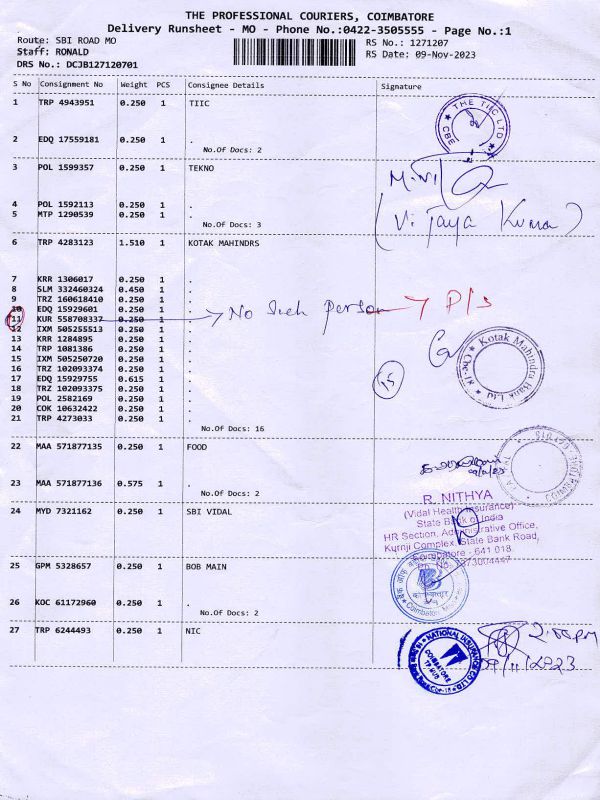 THE PROFESSIONAL COURIERS, COIMBATORE
Delivery Runsheet - MO - Phone No.:0422-3505555 - Page No.:1
Route: SBI ROAD MO
Staff: RONALD
DRS No.: DCJB127120701
RS No.: 1271207
RS Date: 09-Nov-2023
S No Consignment No Weight PCS Consignee Details Signature
1 TRP 4943951 0.250 1 TIIC
THE TIIC LTD CBE
2 EDQ 17559181 0.250 1 .
No.Of Docs: 2
3 POL 1599357 0.250 1 TEKNO
4 POL 1592113 0.250 1 .
5 MTP 1290539 0.250 1 .
No.Of Docs: 3
(Vijaya Kumar)
6 TRP 4283123 1.510 1 KOTAK MAHINDRS
7 KRR 1306017 0.250 1 .
8 SLM 332460324 0.450 1 .
9 TRZ 160618410 0.250 1 .
10 EDQ 15929601 0.250 1 .
11 KUR 558708337 0.250 1 . No such person P/s
12 IXM 505255513 0.250 1 .
13 KRR 1284895 0.250 1 .
14 TRP 1081386 0.250 1 .
15 IXM 505250720 0.250 1 .
16 TRZ 102093374 0.250 1 .
17 EDQ 15929755 0.615 1 .
18 TRZ 102093375 0.250 1 .
19 POL 2582169 0.250 1 .
20 COK 10632422 0.250 1 .
21 TRP 4273033 0.250 1 .
No.Of Docs: 16
15
Kotak Mahindra Bank Ltd Cbe-18
22 MAA 571877135 0.250 1 FOOD
23 MAA 571877136 0.575 1 .
No.Of Docs: 2
24 MYD 7321162 0.250 1 SBI VIDAL
R. NITHYA
(Vidal Health Insurance)
State Bank of India
HR Section, Administrative Office,
Kurnji Complex, State Bank Road,
Coimbatore - 641 018.
25 GPM 5328657 0.250 1 BOB MAIN
26 KOC 61172960 0.250 1 .
No.Of Docs: 2
27 TRP 6244493 0.250 1 NIC
NATIONAL INSURANCE CO LTD
COIMBATORE
2:00pm
09/11/2023